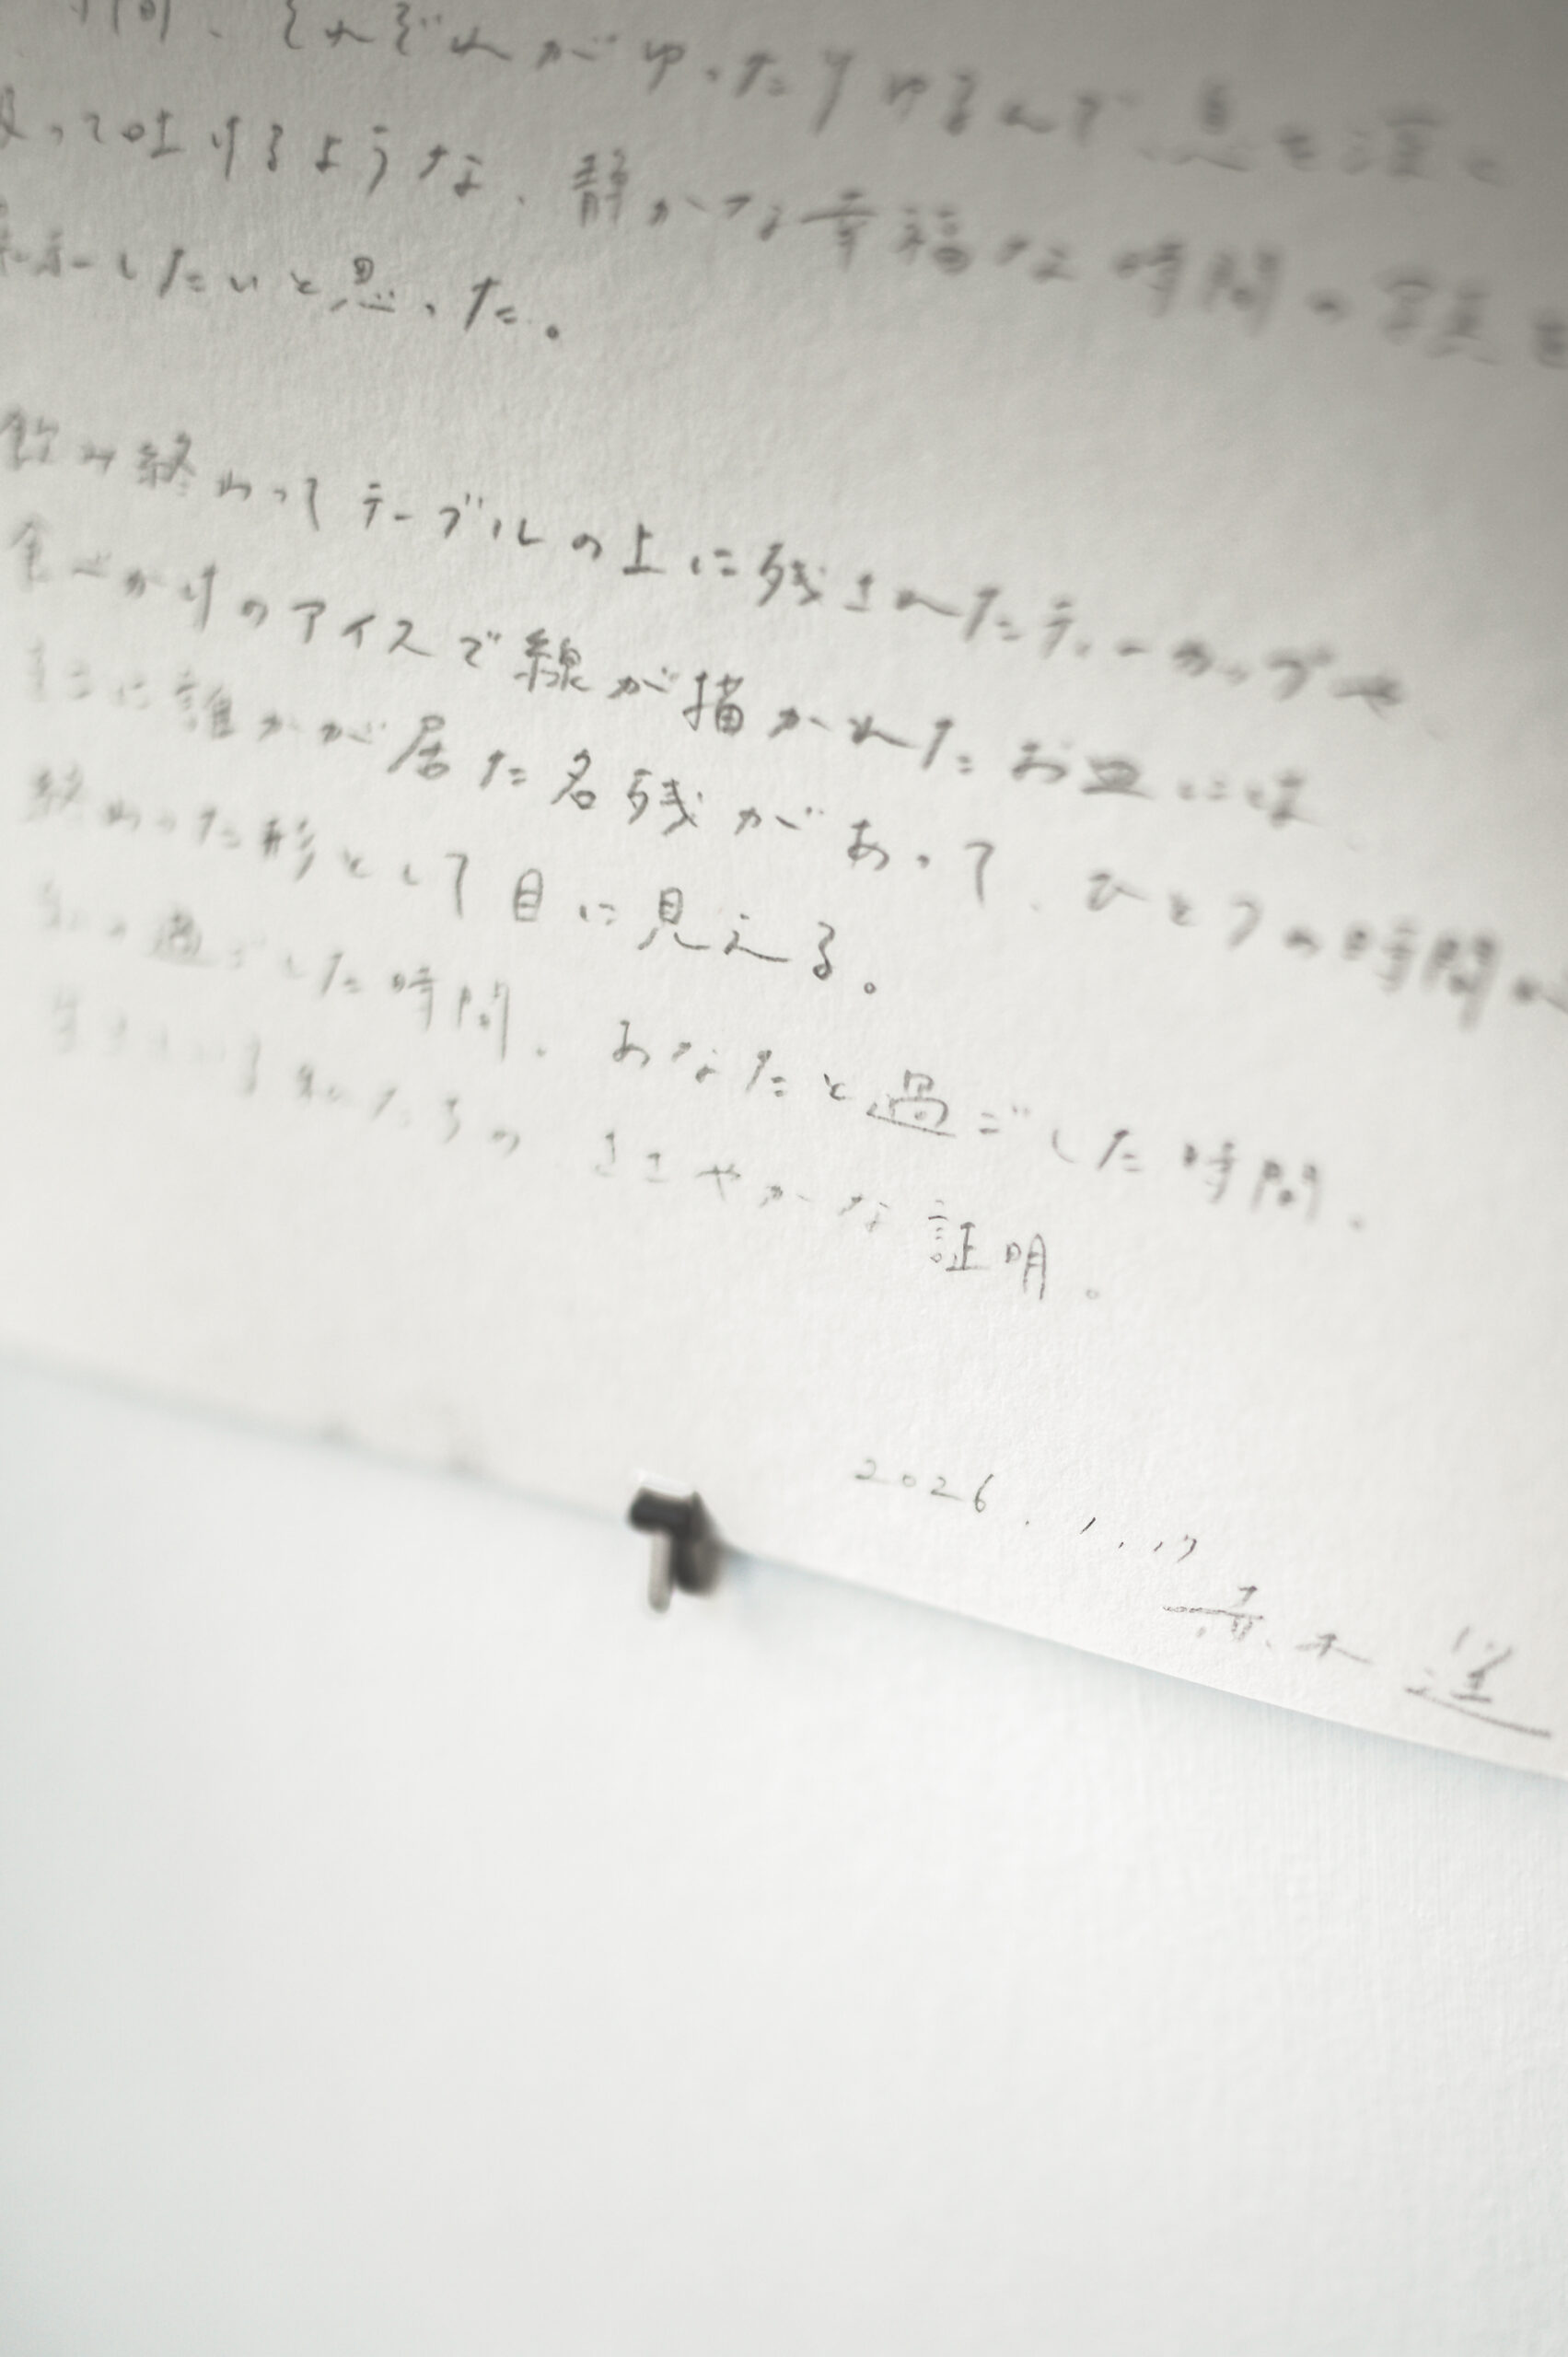 時間、それぞれがゆったりゆるんで息を深く
吸って吐けるような、静かな幸福な時間の写真を
展示したいと思った。
飲み終わってテーブルの上に残されたティーカップや、
食べかけのアイスで線が描かれたお皿には、
そこに誰かが居た名残があって、ひとつの時間が
終わった形として目に見える。
私の過ごした時間、あなたと過ごした時間、
生きている私たちの ささやかな証明。
2026.1.17